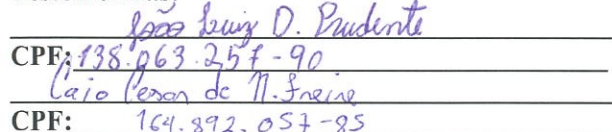 João Luiz D. Prudente
CPF: 138.063.257-90
Caio Cesar de N. Freire
CPF: 164.892.057-85